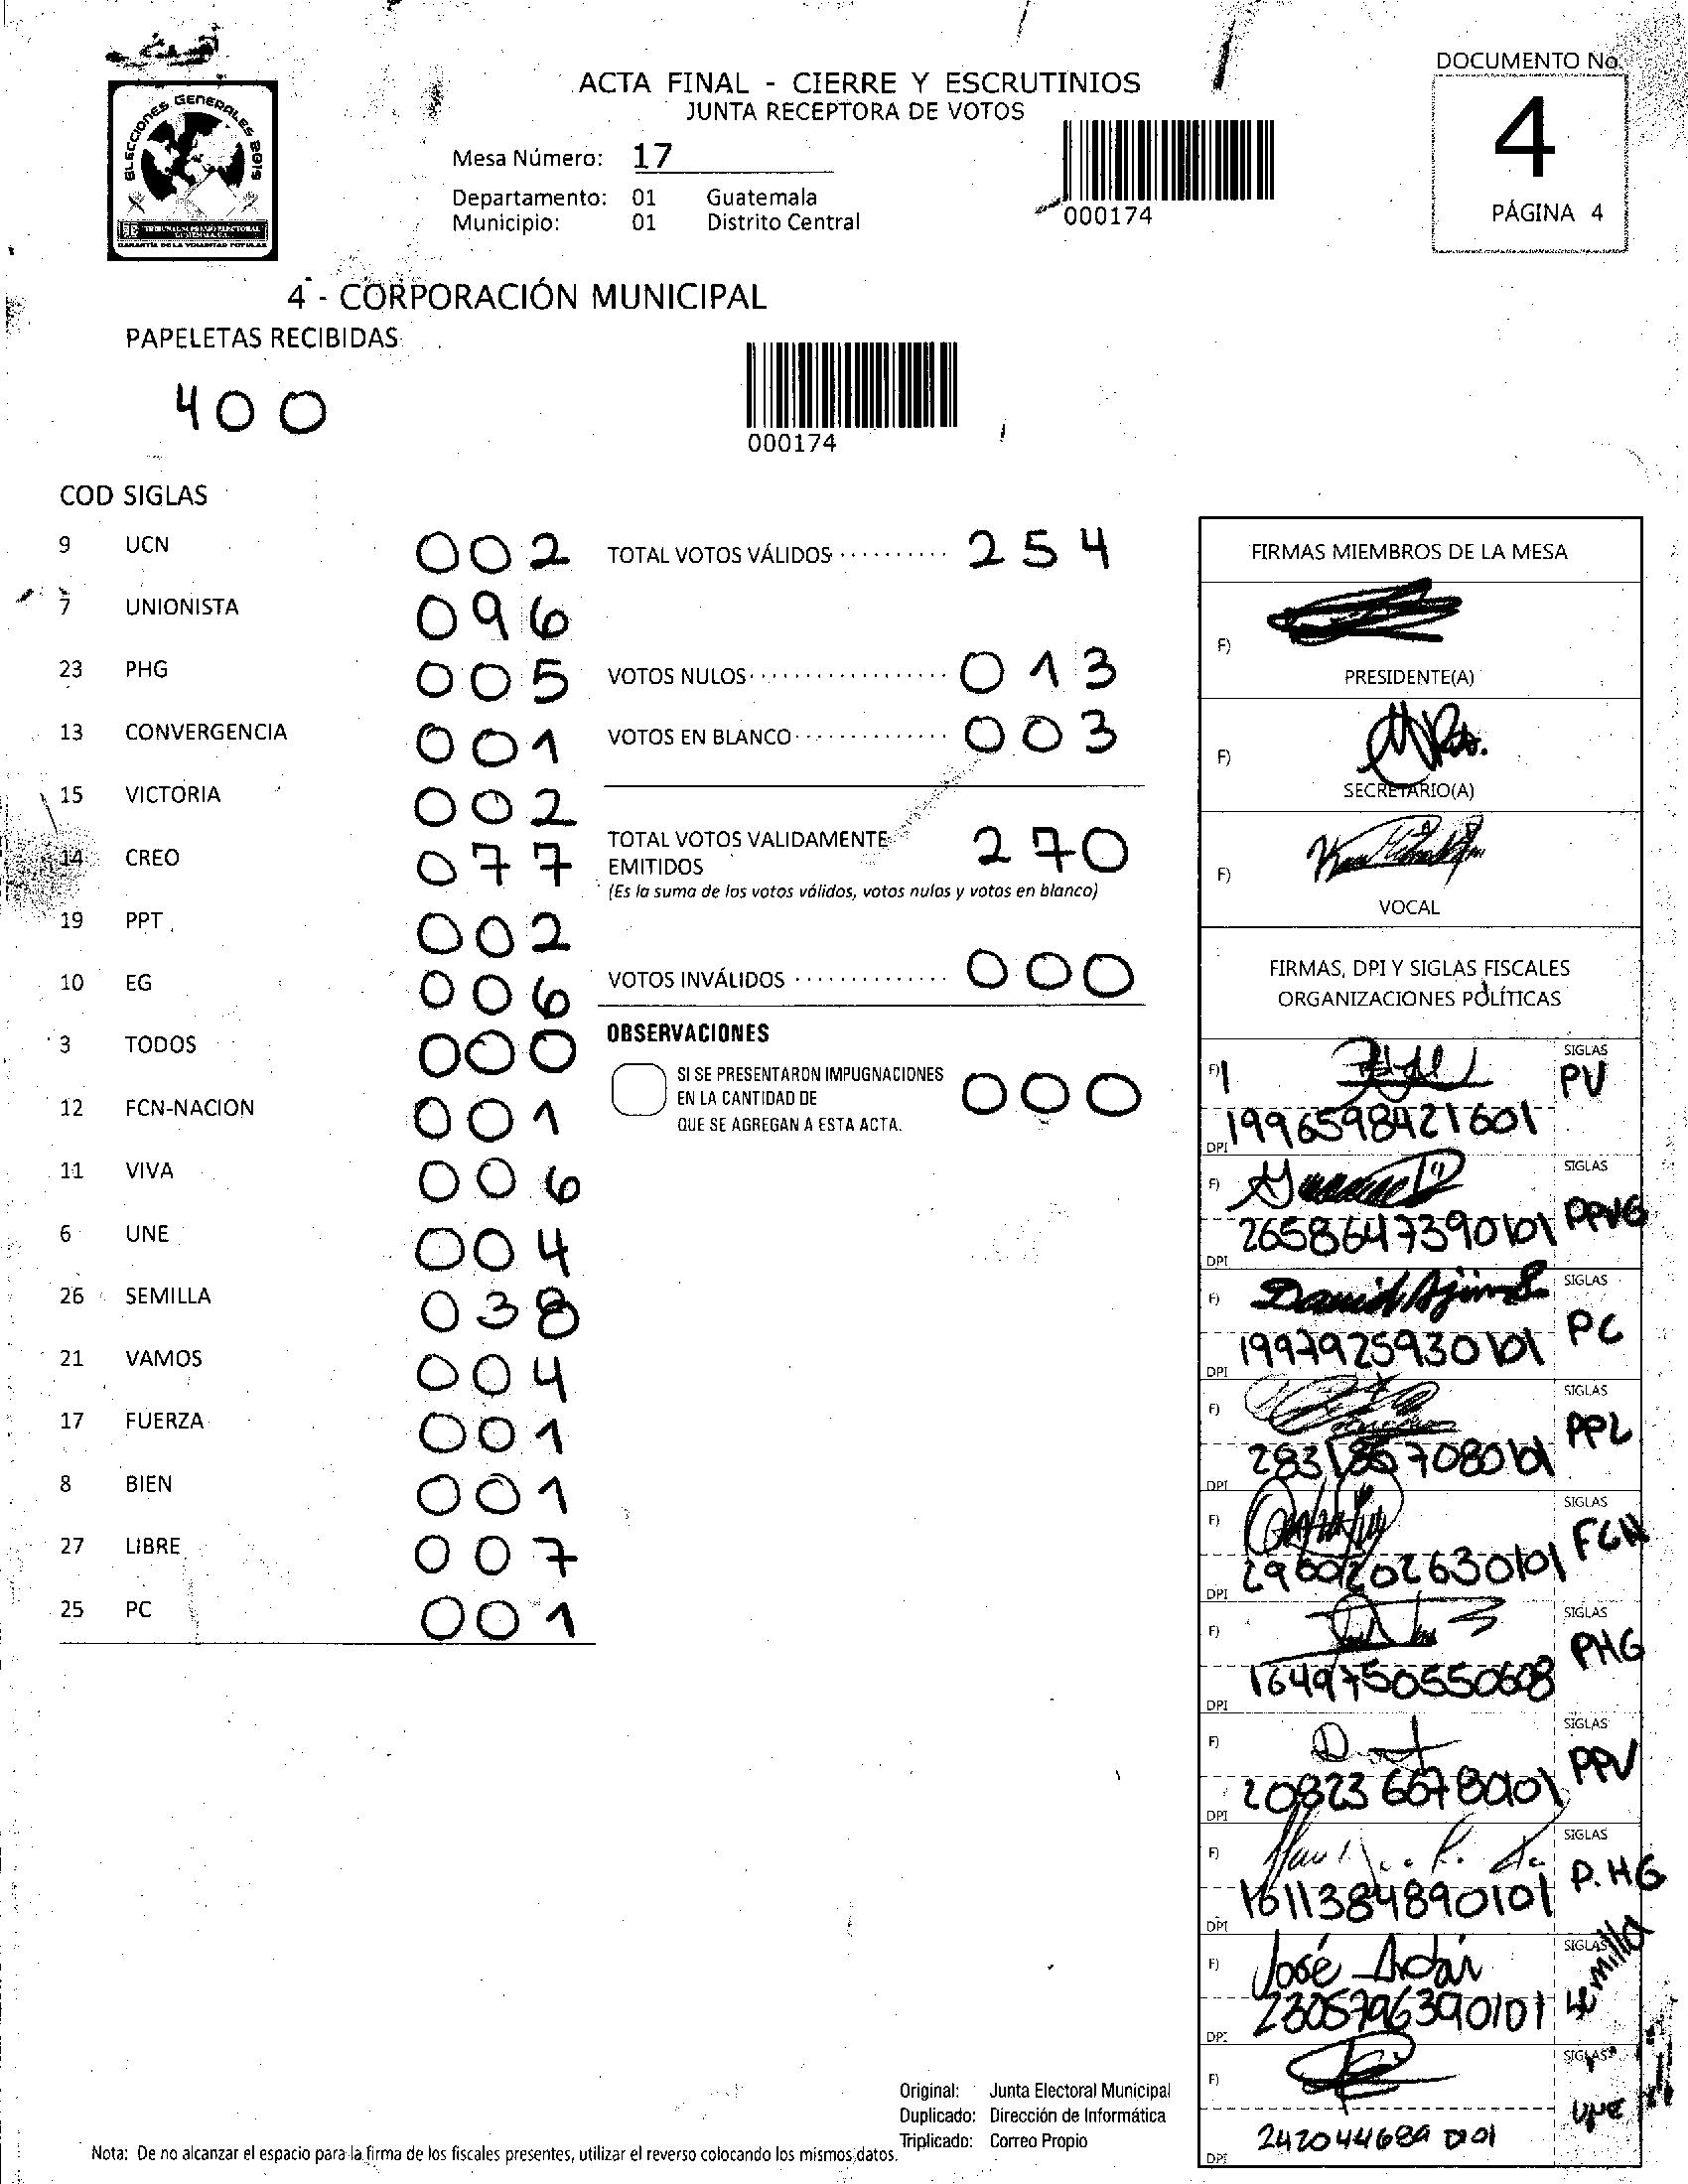 DOCUMENTO No.
ACTA FINAL - CIERRE Y ESCRUTINIOS
JUNTA RECEPTORA DE VOTOS
ELECCIONES GENERALES 2019
TRIBUNAL SUPREMO ELECTORAL
GUATEMALA, C.A.
GARANTÍA DE LA VOLUNTAD POPULAR
Mesa Número: 17
Departamento: 01 Guatemala
Municipio: 01 Distrito Central
000174
4
PÁGINA 4
4 - CORPORACIÓN MUNICIPAL
PAPELETAS RECIBIDAS
400
000174
COD SIGLAS
9 UCN 002
7 UNIONISTA 096
23 PHG 005
13 CONVERGENCIA 001
15 VICTORIA 002
14 CREO 077
19 PPT 002
10 EG 006
3 TODOS 000
12 FCN-NACION 001
11 VIVA 006
6 UNE 004
26 SEMILLA 038
21 VAMOS 004
17 FUERZA 001
8 BIEN 001
27 LIBRE 007
25 PC 001
TOTAL VOTOS VÁLIDOS 254
VOTOS NULOS 013
VOTOS EN BLANCO 003
TOTAL VOTOS VALIDAMENTE
EMITIDOS 270
(Es la suma de los votos válidos, votos nulos y votos en blanco)
VOTOS INVÁLIDOS 000
OBSERVACIONES
SI SE PRESENTARON IMPUGNACIONES
EN LA CANTIDAD DE 000
QUE SE AGREGAN A ESTA ACTA.
FIRMAS MIEMBROS DE LA MESA
F)
PRESIDENTE(A)
F)
SECRETARIO(A)
F)
VOCAL
FIRMAS, DPI Y SIGLAS FISCALES
ORGANIZACIONES POLÍTICAS
F) SIGLAS PV
DPI 1996598421601
F) SIGLAS PPVG
DPI 2658647390101
F) David Ajin S. SIGLAS PC
DPI 1997925930101
F) SIGLAS PPL
DPI
F) SIGLAS FCN
DPI 2960202630101
F) SIGLAS PHG
DPI 1649750550608
F) SIGLAS PPV
DPI
F) SIGLAS P.HG
DPI 1611384890101
F) José Adair SIGLAS Semilla
DPI 2305796390101
F) SIGLAS UNE
DPI 2420446890101
Original: Junta Electoral Municipal
Duplicado: Dirección de Informática
Triplicado: Correo Propio
Nota: De no alcanzar el espacio para la firma de los fiscales presentes, utilizar el reverso colocando los mismos datos.